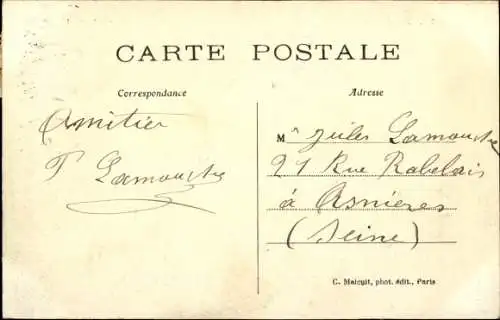 CARTE POSTALE
Correspondance
Amitier
P Lamouche
Adresse
Mr Jules Lamouche
27 Rue Rabelais
à Asnieres
(Seine)
C. Malcuit, phot. édit., Paris